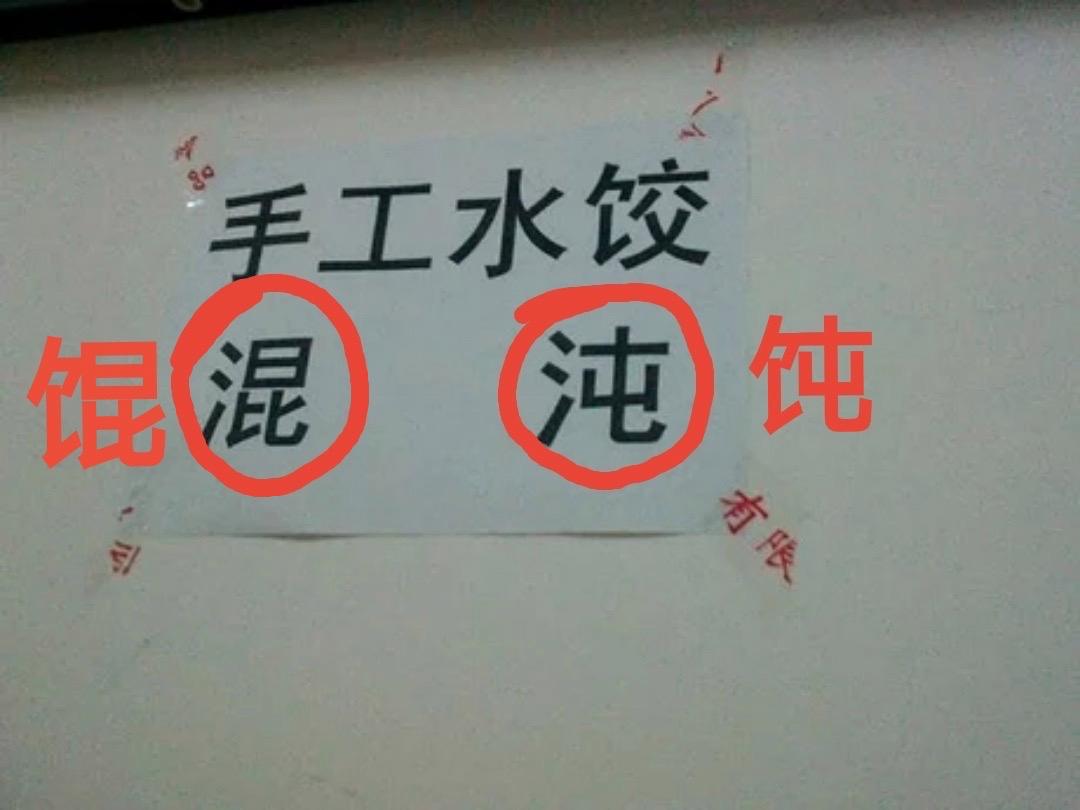 手工水饺
馄 混 沌 饨
有限